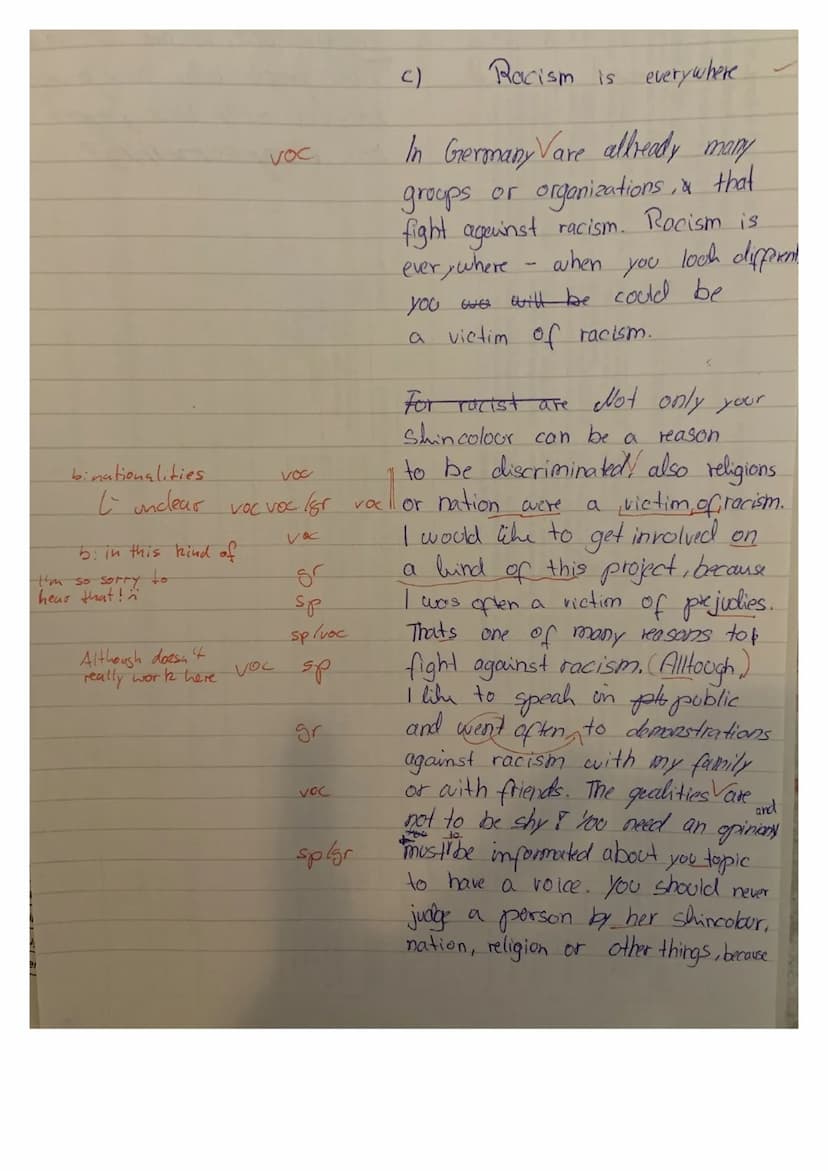 c) Racism is everywhere
voc In Germany V are allready many
groups or organizations, that
fight against racism. Racism is
everywhere - when you look different
you was will be could be
a victim of racism.
For racist are Not only your
skincolour can be a reason
b: nationalities voc to be discriminated, also religions
unclear voc voc/gr voc or nation were a victim of racism.
voc I would like to get involved on
b: in this kind of gr a kind of this project, because
I'm so sorry to hear that! sp I was often a victim of prejudies.
sp/voc Thats one of many reasons to
Although doesn't really work here voc sp fight against racism. (Alltough,)
I like to speak in public
gr and went often to demonstrations
against racism with my family
voc or with friends. The qealities V are
not to be shy! You need an opinion and
sp/gr must to be informated about you topic
to have a voice. You should never
judge a person by her skincolour,
nation, religion or other things, because